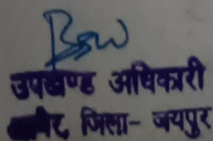 उपखण्ड अधिकारी
जिला- जयपुर